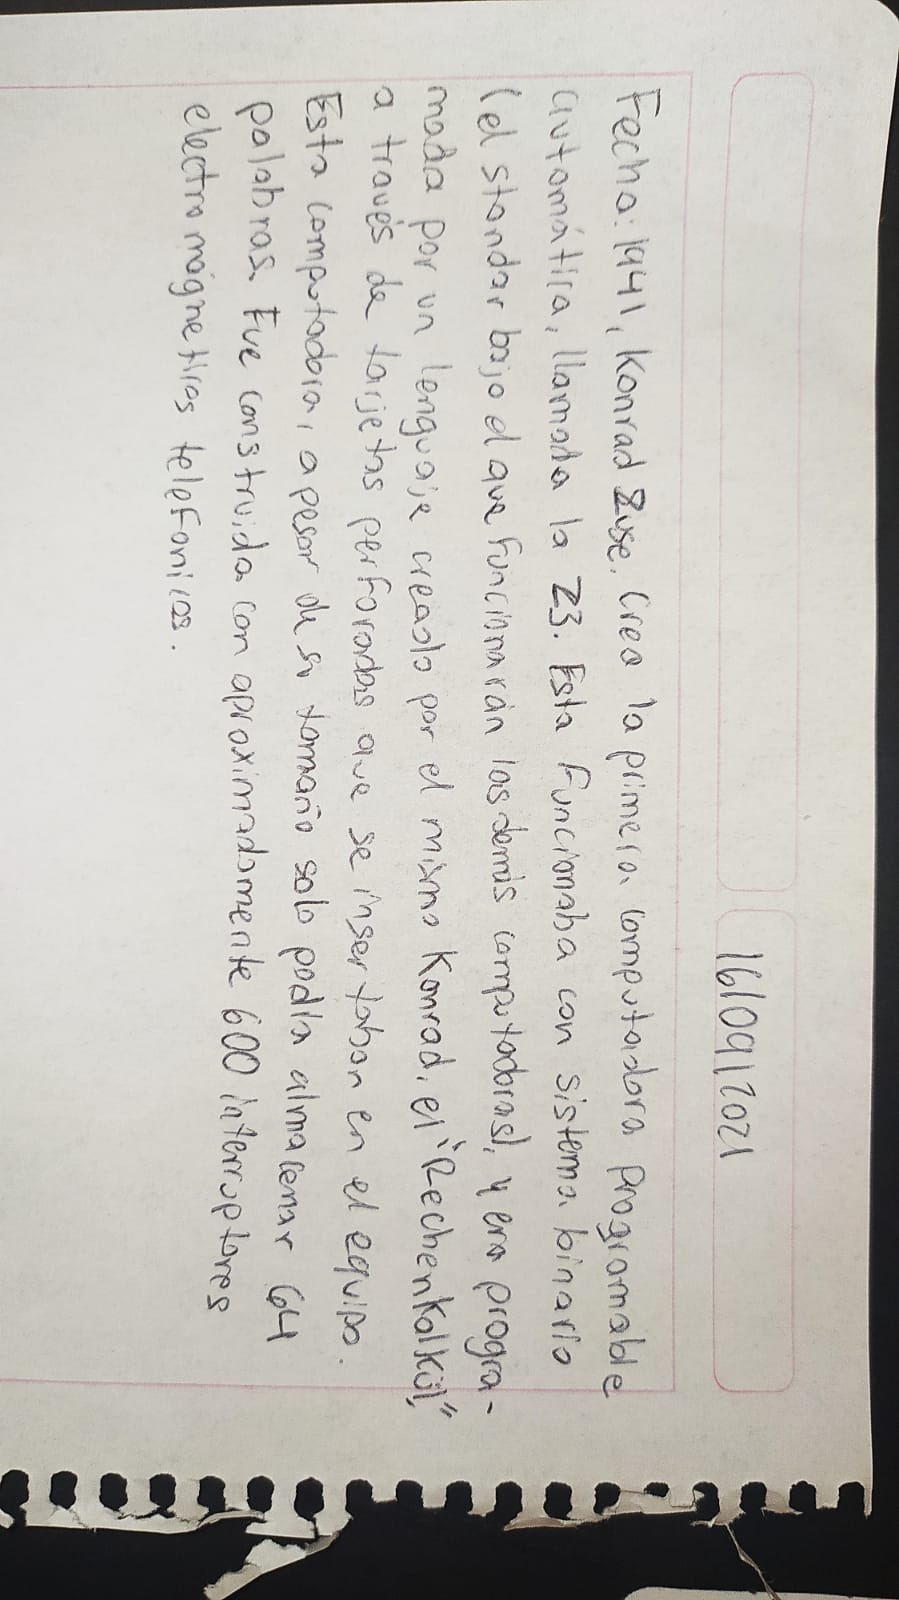 16/09/2021
Fecha: 1941, Konrad Zuse. Crea la primera computadora programable
automática, llamada la Z3. Esta funcionaba con sistema binario
(el standar bajo el que funcionarán las demás computadoras), y era progra-
mada por un lenguaje creado por el mismo Konrad, el "Rechenkalkül,"
a través de tarjetas perforadas que se insertaban en el equipo.
Esta computadora, a pesar de su tamaño solo podía almacenar 64
palabras. Fue construida con aproximadamente 600 interruptores
electromágneticos telefonicos.